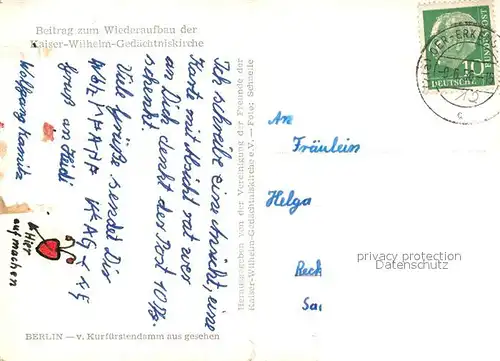 Beitrag zum Wiederaufbau der
Kaiser-Wilhelm-Gedächtniskirche
Ich schreibe eine Ansicht, eine
Karte mit Absicht rat wer
an Dich denkt der Post 10 Pf.
schenkt.
Viele Grüße sendet Dir
Gruß an Heidi
Wolfgang
Hier
aufmachen
BERLIN — v. Kurfürstendamm aus gesehen
Herausgegeben von der Vereinigung der Freunde der
Kaiser-Wilhelm-Gedächtniskirche e.V. — Foto: Schmelle
DEUTSCHE
BUNDESPOST
10
An
Fräulein
Helga
Reck
Sa
privacy protection
Datenschutz